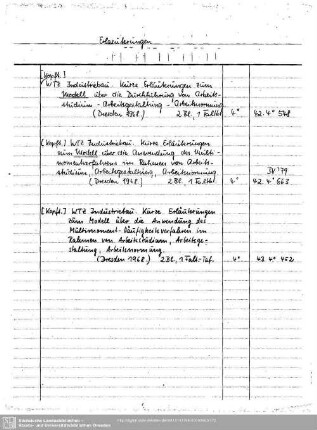 Erläuterungen
[Kopft.]
WTZ Industriebau. Kurze Erläuterungen zum
Modell über die Durchführung von Arbeits-
studium - Arbeitsgestaltung - Arbeitsnormung
(Dresden 1968.) 2 Bl, 1 Falttaf. 4° 42. 4° 548
[Kopft.] WTZ Industriebau. Kurze Erläuterungen
zum Modell über die Anwendung des Multi-
momentverfahrens im Rahmen von Arbeits-
studium, Arbeitsgestaltung, Arbeitsnormung
IV '79
(Dresden 1968.) 2 Bl, 1 Falttaf. 4° 42. 4° 563
[Kopft.] WTZ Industriebau. Kurze Erläuterungen
zum Modell über die Anwendung des
Multimoment-Häufigkeitsverfahrens im
Rahmen von Arbeitsstudium, Arbeitsge-
staltung, Arbeitsnormung.
(Dresden 1968.) 2 Bl, 1 Falt-Taf. 4° 43. 4° 452
Sächsische Landesbibliothek -
Staats- und Universitätsbibliothek Dresden